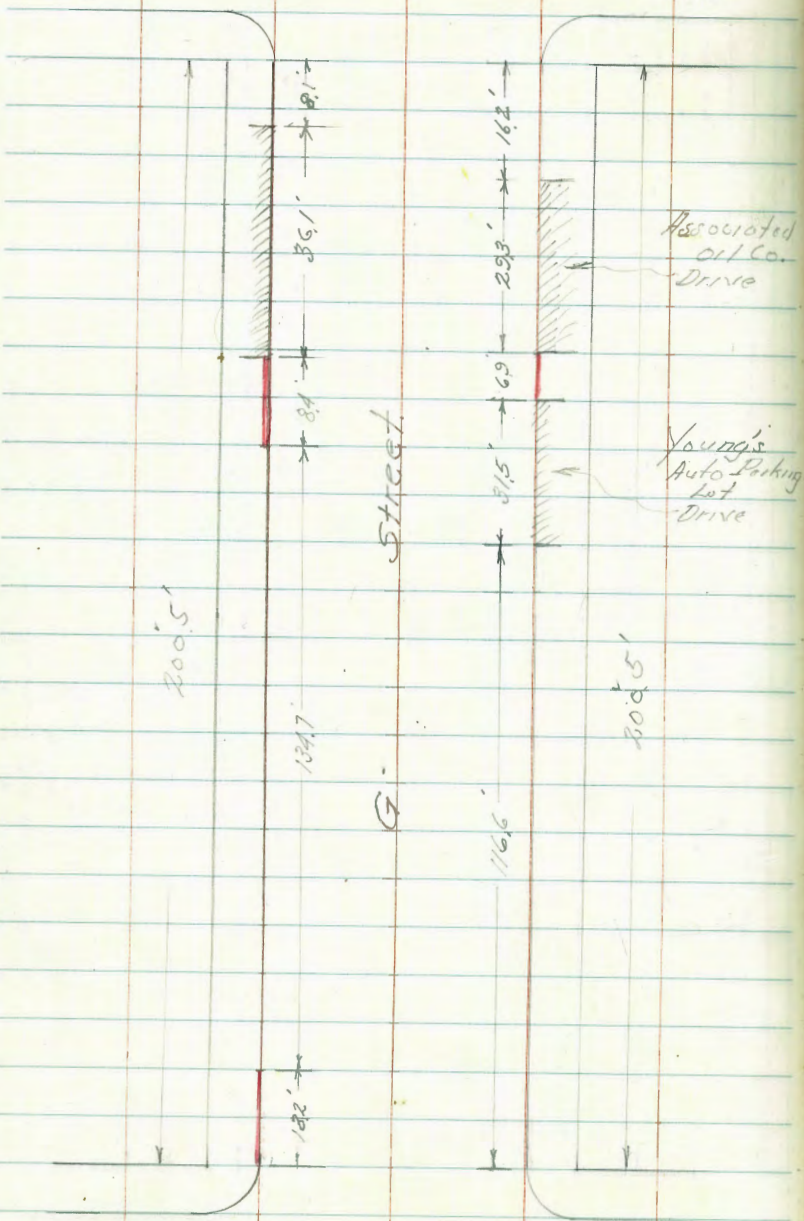 8.1'
36.1'
8.4'
134.7'
13.2'
200.5'
G Street
16.2'
29.3'
6.9'
31.5'
116.6'
200.5'
Associated
Oil Co.
Drive
Young's
Auto Parking
Lot
Drive